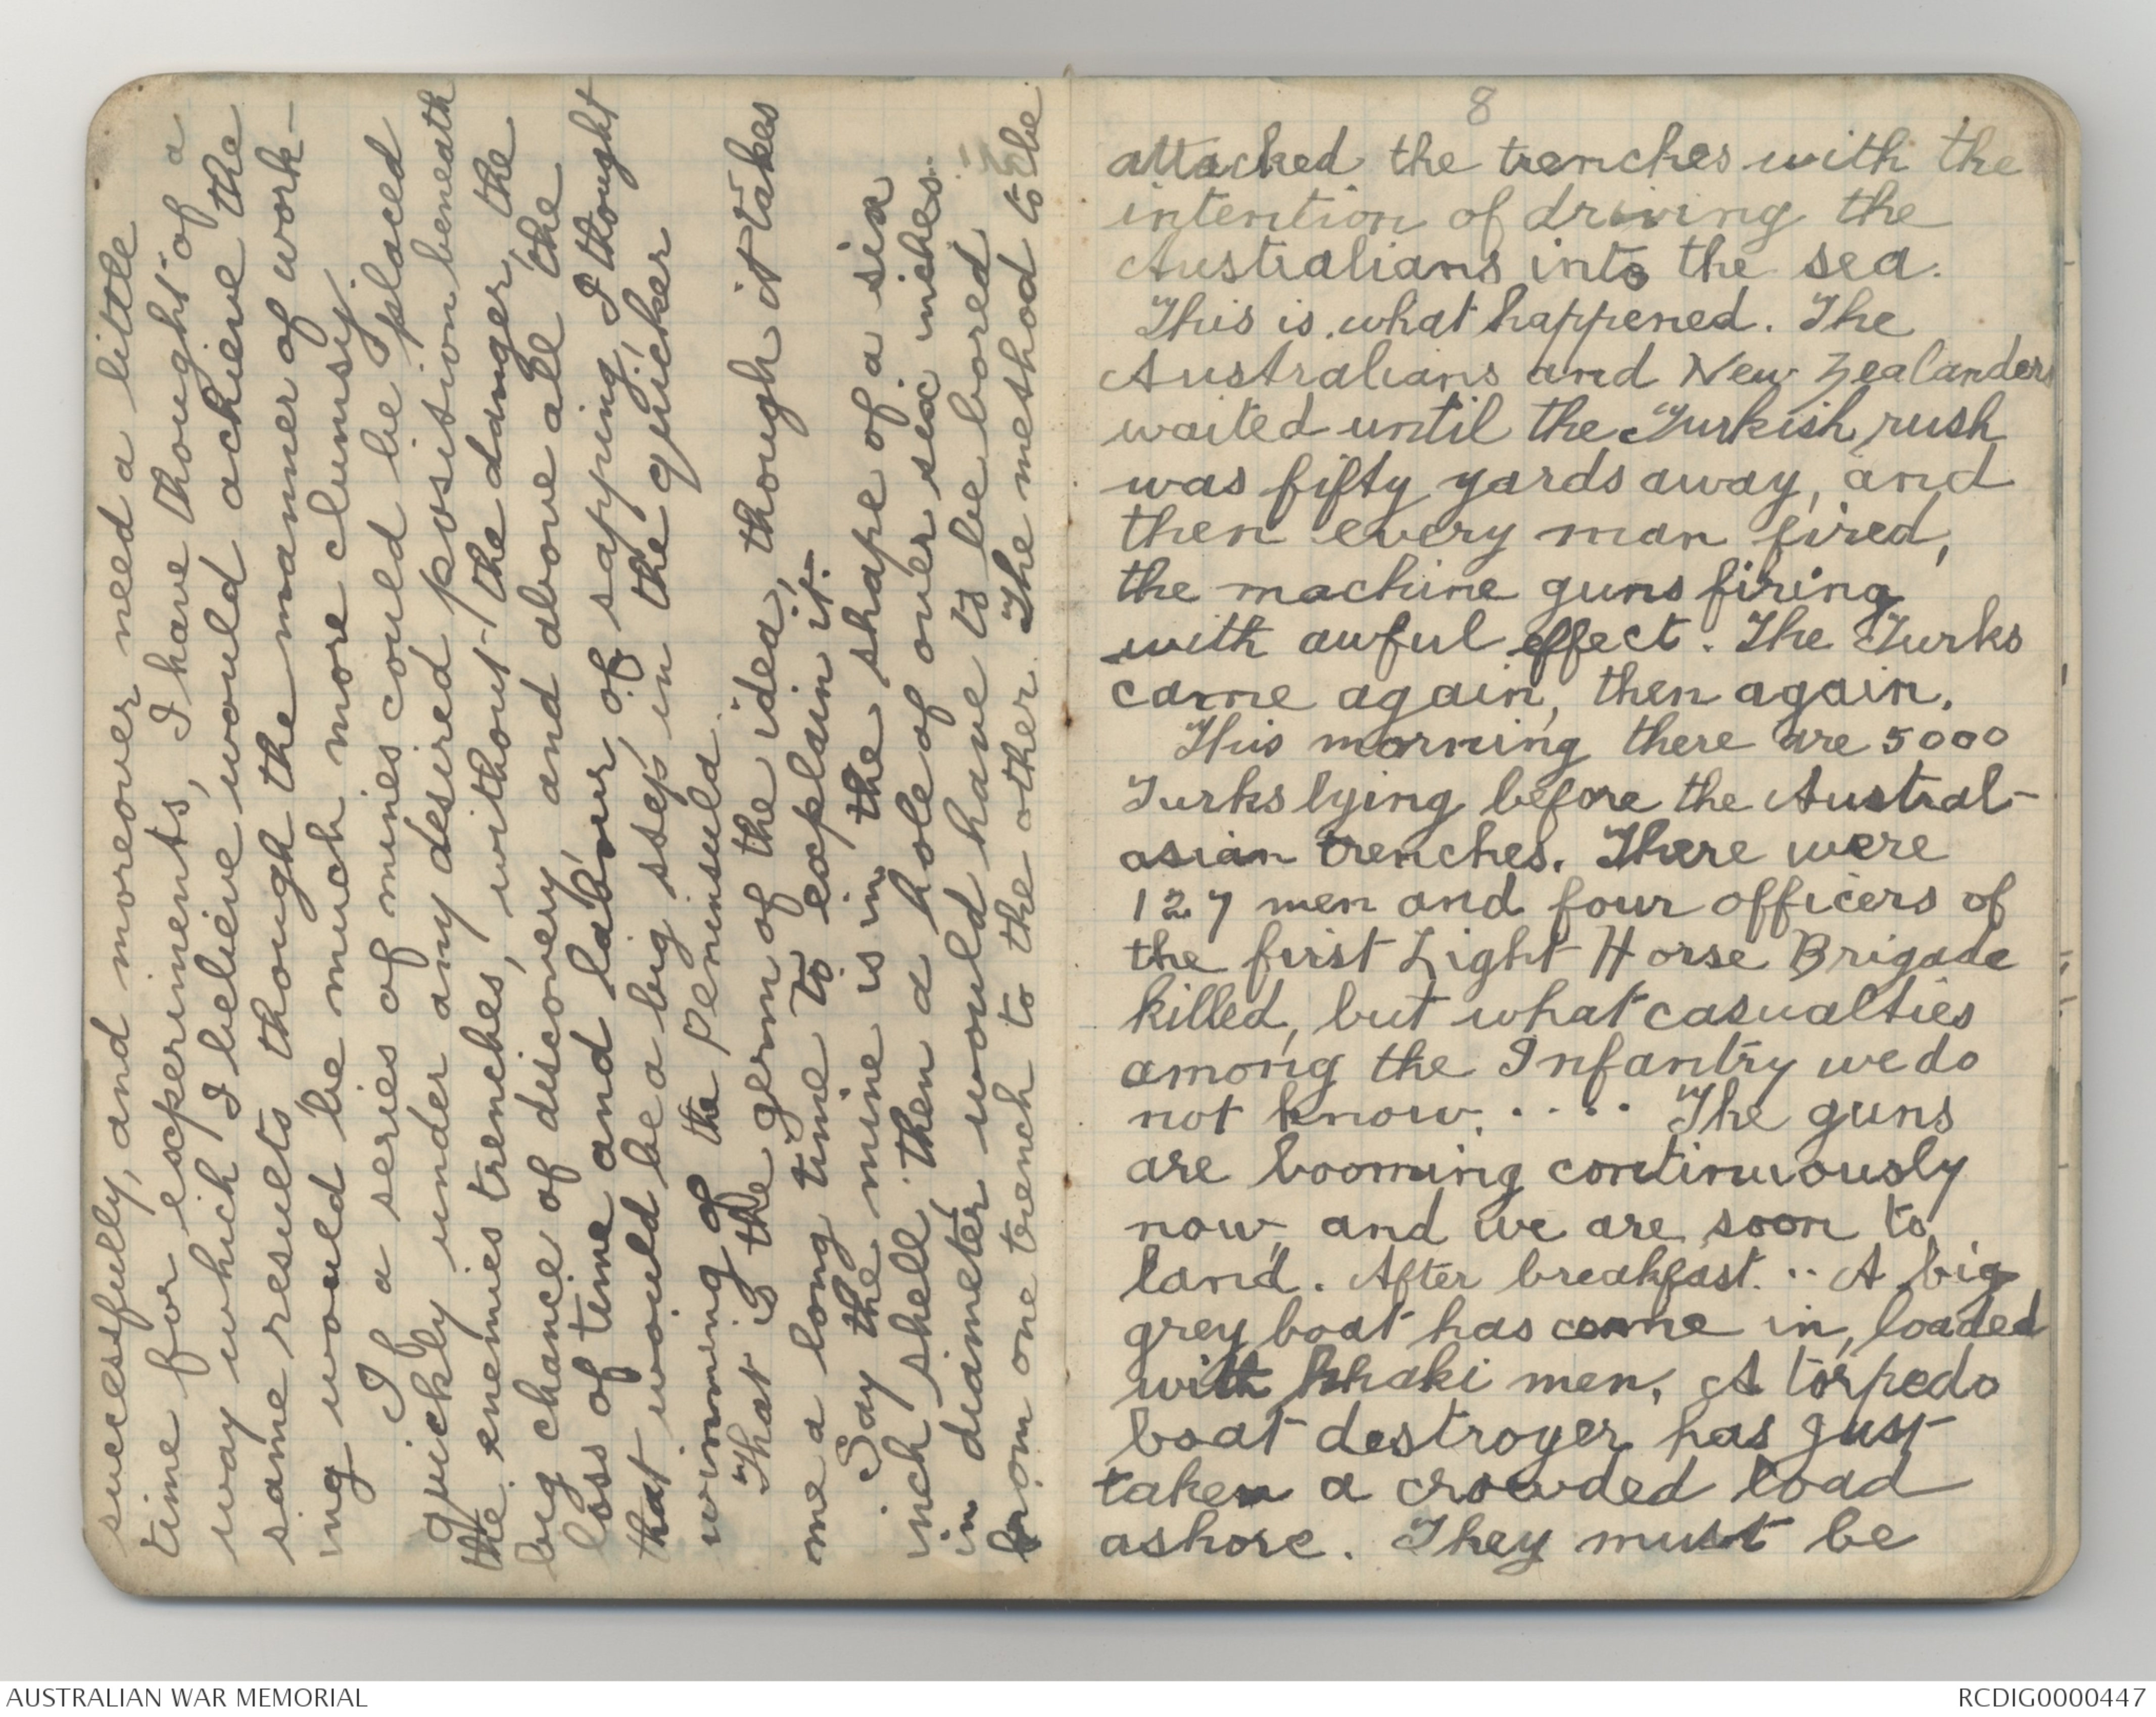 successfully, and moreover need a little
time for experiments, I have thought of a
way which I believe would achieve the
same results though the manner of work-
ing would be much more clumsy.
If a series of mines could be placed
quickly under any desired position beneath
the enemies trenches, without the danger, the
big chance of discovery, and above all the
loss of time and labour, of sapping, I thought
that would be a big step in the quicker
winning of the Peninsula.
That is the germ of the idea, though it takes
me a long time to explain it.
Say the mine is in the shape of a six
inch shell, then a hole of over six inches
in diameter would have to be bored
from one trench to the other. The method to be
8
attacked the trenches with the
intention of driving the
Australians into the sea.
This is what happened. The
Australians and New Zealanders
waited until the Turkish rush
was fifty yards away, and
then every man fired,
the machine guns firing
with awful effect. The Turks
came again, then again.
This morning there are 5000
Turks lying before the Austral-
asian trenches. There were
127 men and four officers of
the first Light Horse Brigade
killed, but what casualties
among the Infantry we do
not know. . . . . The guns
are booming continuously
now, and we are soon to
land. After breakfast. .. A big
grey boat has come in, loaded
with khaki men. A torpedo
boat destroyer has just
taken a crowded load
ashore. They must be
AUSTRALIAN WAR MEMORIAL
RCDIG0000447